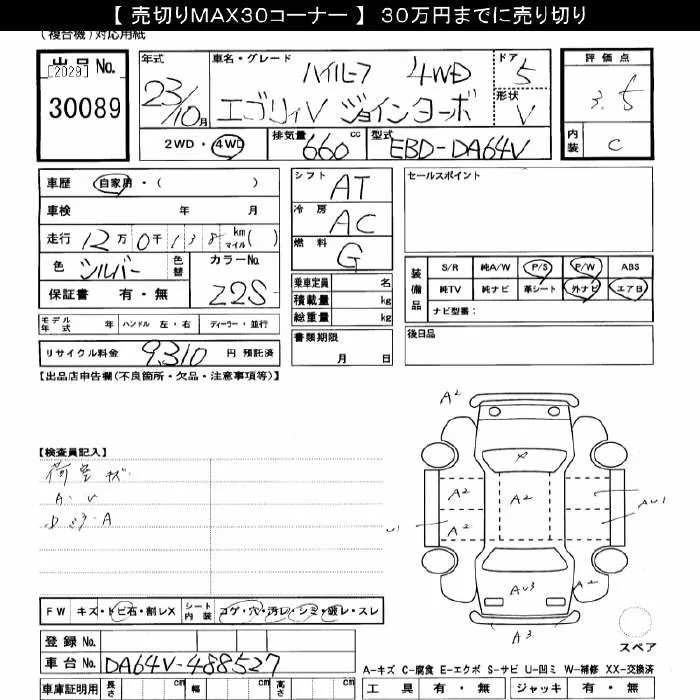 【 売切りMAX30コーナー 】 30万円までに売り切り
(複合機)対応用紙
出品No.
[2029]
30089
年式
23/10月
車名・グレード
ハイルーフ 4WD
エブリィV ジョインターボ
ドア
5
形状
V
評価点
3.5
内装
C
2WD・4WD
排気量
660 cc
型式
EBD-DA64V
車歴 自家用・( )
車検 年 月
走行 12万0千138 km マイル ( )
色 シルバー
色替
カラーNo.
Z2S
保証書 有・無
モデル年式 年 ハンドル 左・右 ディーラー・並行
リサイクル料金 9,310 円 預託済
シフト AT
冷房 AC
燃料 G
乗車定員 名
積載量 kg
総重量 kg
書類期限
月 日
セールスポイント
装備品
S/R 純A/W P/S P/W ABS
純TV 純ナビ 革シート 外ナビ エアB
ナビ型番:
後日品
【出品店申告欄(不良箇所・欠品・注意事項等)】
【検査員記入】
荷室キズ
A・U
ロミラーA
A2
A2
A2
A2
U1
AU1
AU3
A2
A3
スペア
FW キズ・トビ石・割レX
シート内装 コゲ・穴・汚レ・シミ・破レ・スレ
登録No.
車台No. DA64V-488527
車庫証明用 長さ cm 幅 cm 高さ cm
A-キズ C-腐食 E-エクボ S-サビ U-凹ミ W-補修 XX-交換済
工具 有・無 ジャッキ 有・無